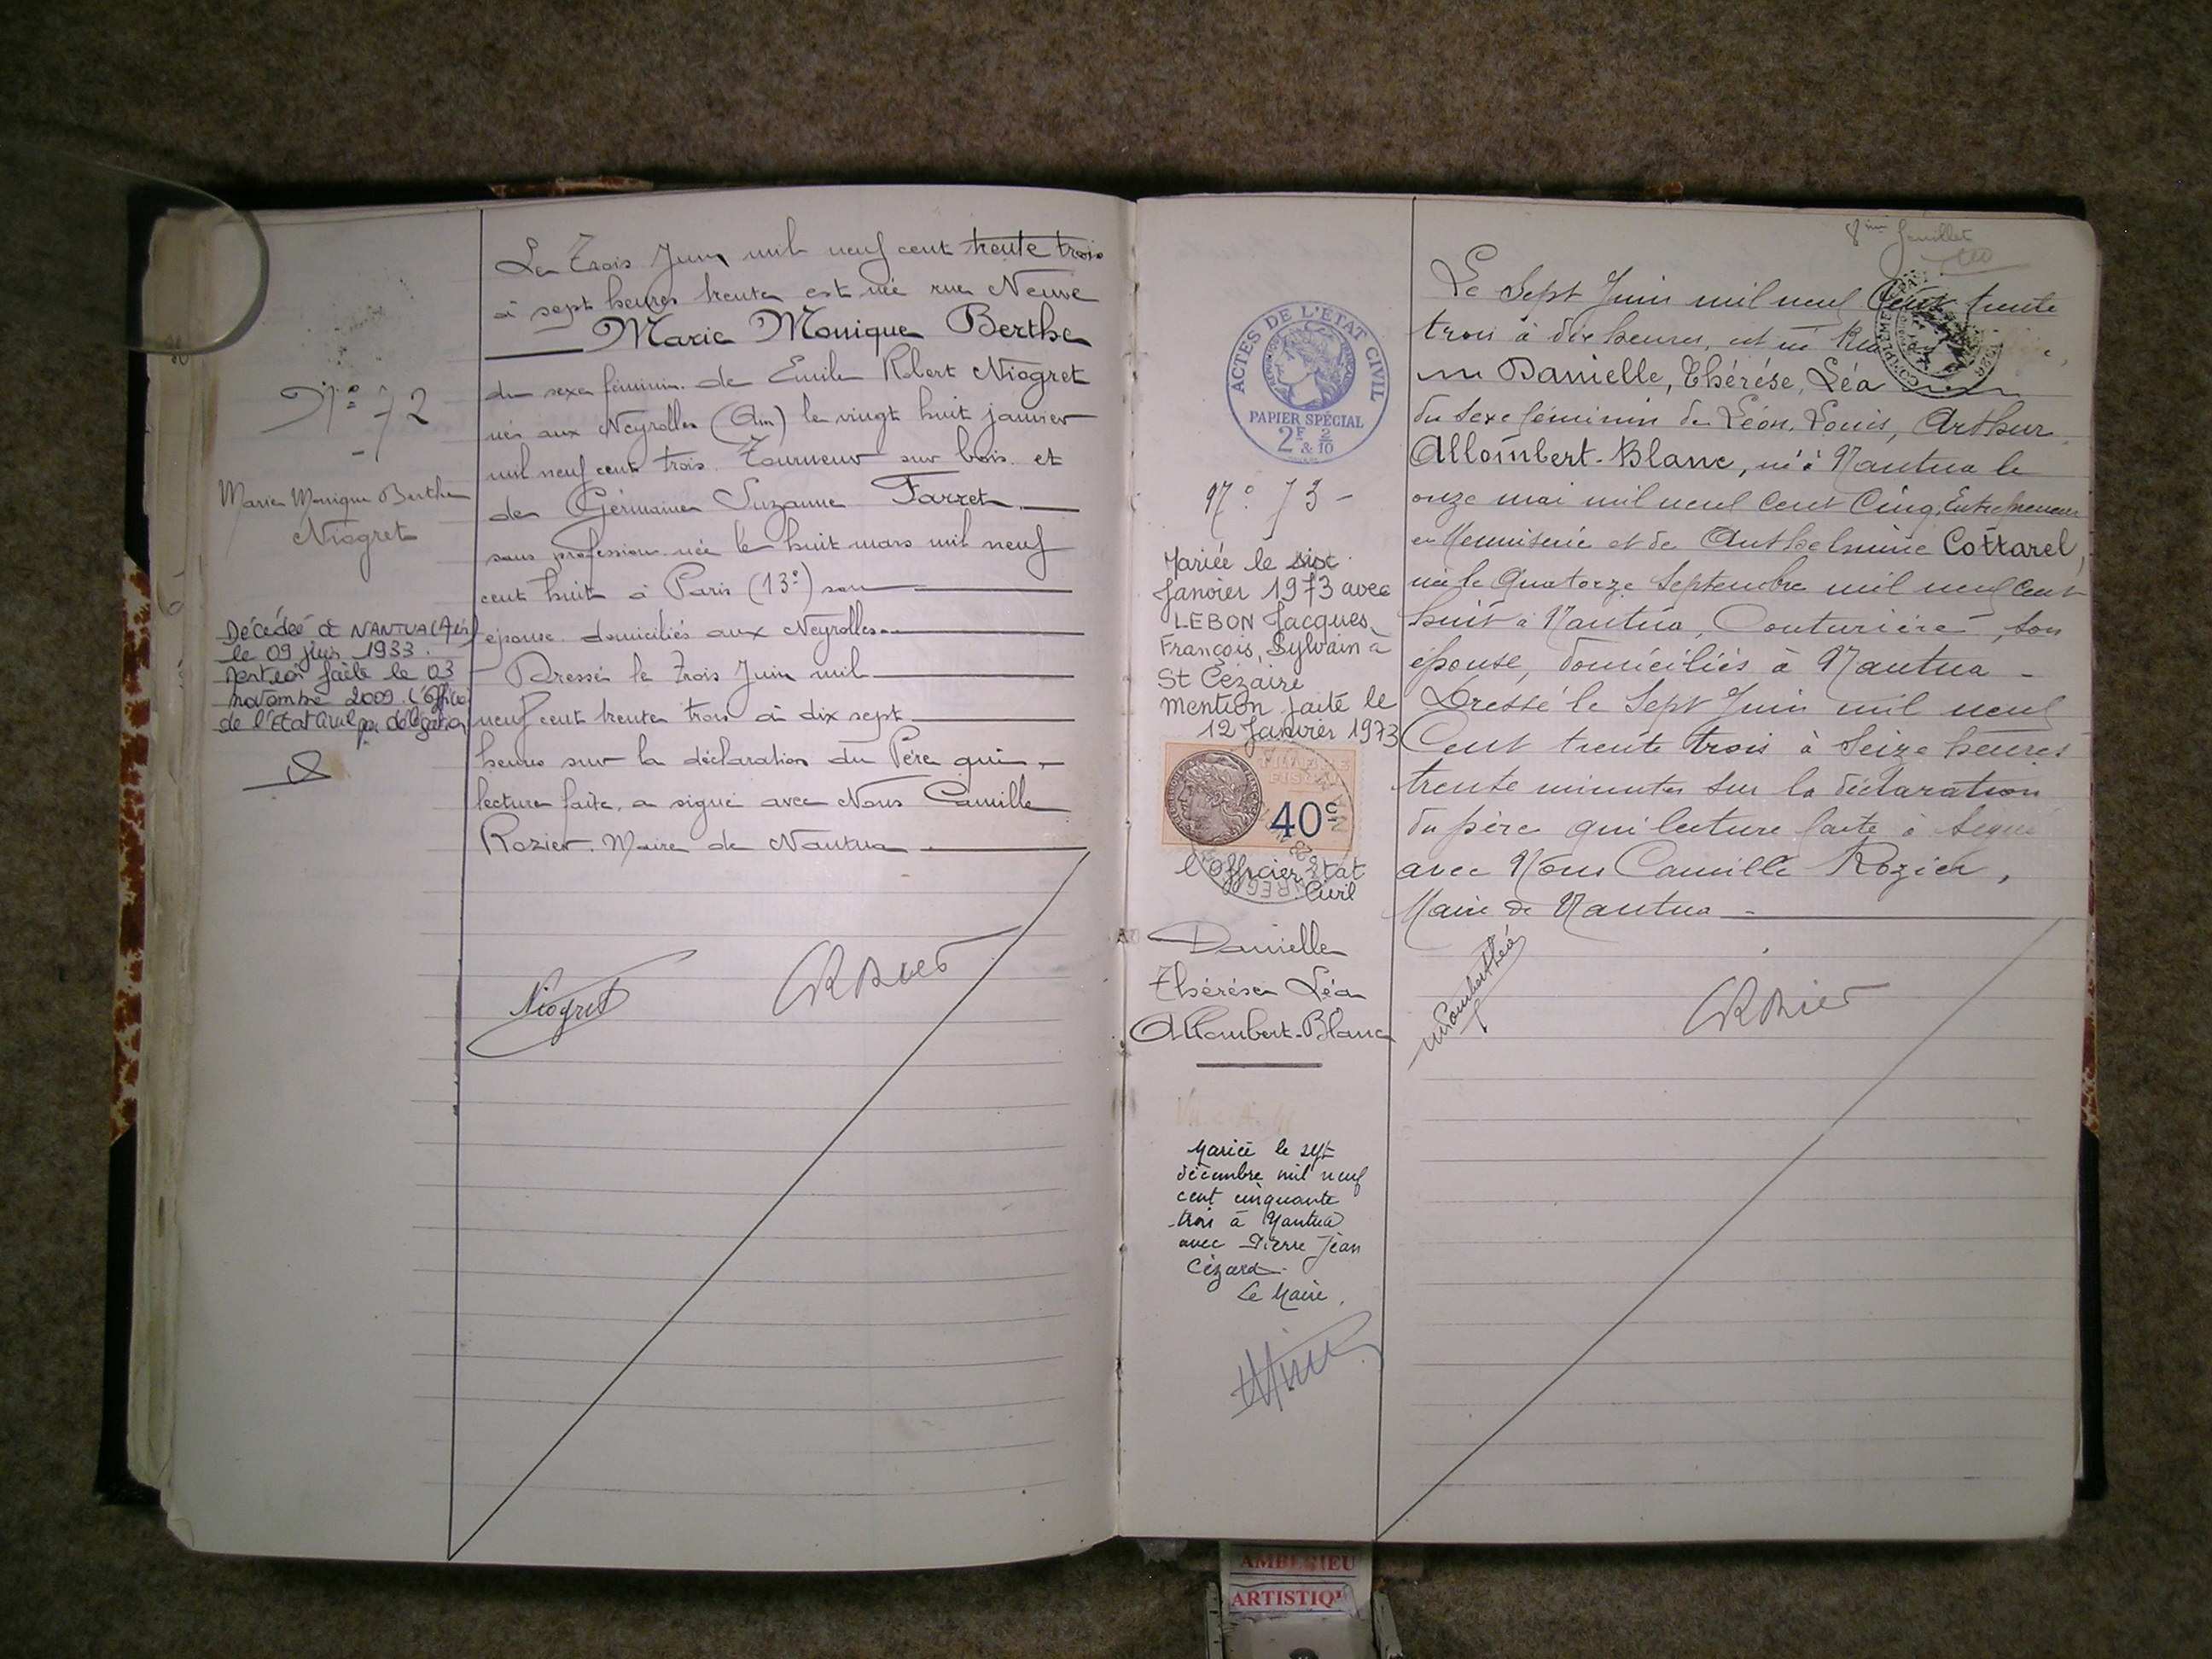 N° 72
Marie Monique Berthe
Niogret
Décédée à NANTUA (Ain)
le 09 Juin 1933.
Mention faite le 03
novembre 2009. L'Officier
de l'Etat Civil par délégation
Le Trois Juin mil neuf cent trente trois
à sept heures trente est née rue Neuve
Marie Monique Berthe
du sexe féminin de Emile Robert Niogret
né aux Neyrolles (Ain) le vingt huit janvier
mil neuf cent trois. Tourneur sur bois et
de Germaine Suzanne Farret
sans profession née le huit mars mil neuf
cent huit à Paris (13e) son
épouse domiciliés aux Neyrolles
Dressé le Trois Juin mil
neuf cent trente trois à dix sept
heures sur la déclaration du Père qui,
lecture faite, a signé avec Nous Camille
Rozier. Maire de Nantua
Niogret
CRozier
8ème feuillet
ACTES DE L'ÉTAT CIVIL
PAPIER SPÉCIAL
2F & 2/10
N° 73 -
Mariée le six
Janvier 1973 avec
LEBON Jacques
François, Sylvain à
St Cézaire
mention faite le
12 Janvier 1973
40c
l'Officier Etat
Civil
Danielle
Thérèse Léa
Allombert-Blanc
Mariée le sept
décembre mil neuf
cent cinquante
trois à Nantua
avec Pierre Jean
Cézard.
Le Maire,
Le Sept Juin mil neuf Cent trente
trois à dix heures, est né
Danielle, Thérèse, Léa
du sexe féminin de Léon, Louis, Arthur
Allombert-Blanc, né à Nantua le
onze mai mil neuf cent Cinq, Entrepreneur
en Menuiserie et de Anthelmine Cottarel,
née le Quatorze Septembre mil neuf Cent
huit à Nantua, Couturière, son
épouse, domiciliés à Nantua -
Dressé le Sept Juin mil neuf
Cent trente trois à Seize heures
trente minutes sur la déclaration
du père qui lecture faite a signé
avec Nous Camille Rozier,
Maire de Nantua -
CRozier
AMBERIEU
ARTISTIQU